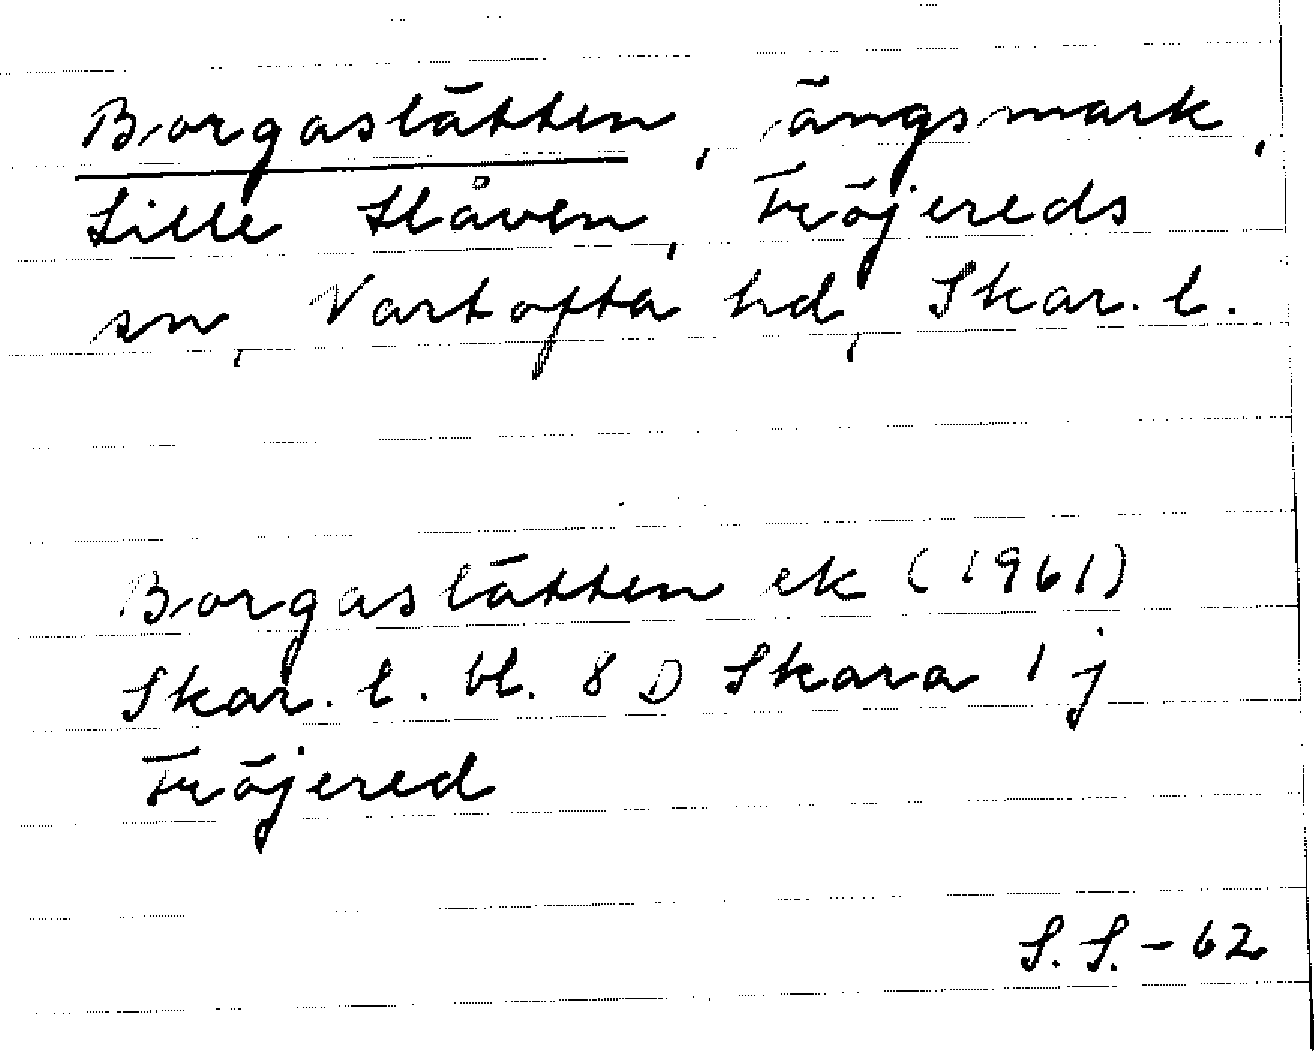 Borgaslätten, ängsmark,
Lille Håven, Fröjereds
sn, Vartofta hd, Skar. l.
Borgaslätten ek (1961)
Skar. l. bl. 8 D Skara 1 j
Fröjered
S. S. - 62